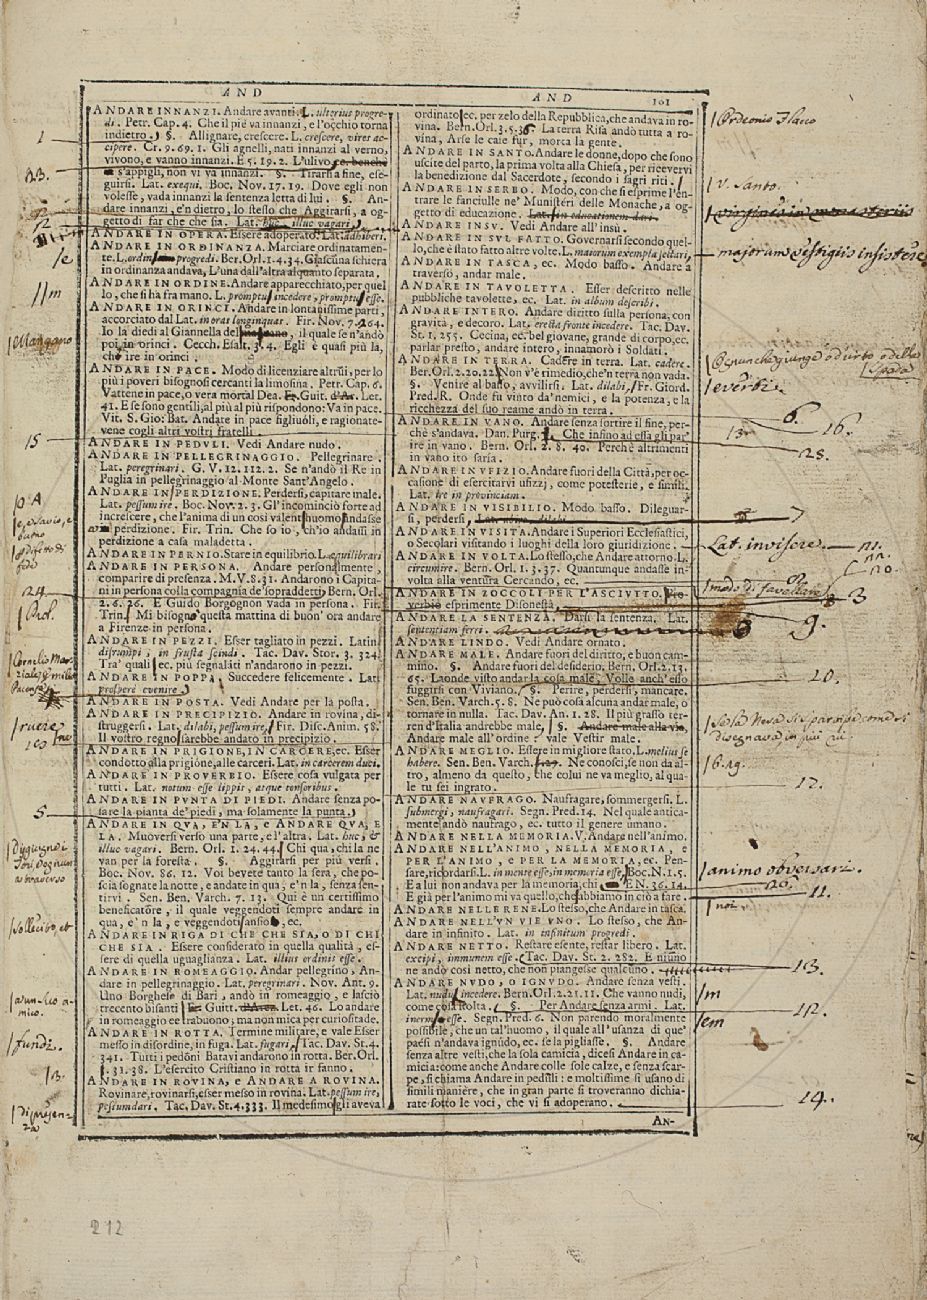 AND
AND
101
ANDARE INNANZI. Andare avanti. L. ulterius progre-
di. Petr. Cap. 4. Che il più va innanzi, e l'occhio torna
indietro. §. Allignare, crescere. L. crescere, vires ac-
cipere. Cr. 9. 69. 1. Gli agnelli, nati innanzi al verno,
vivono, e vanno innanzi. E 5. 19. 2. L'ulivo, ec. benchè
s'appigli, non vi va innanzi. §. Tirarsi a fine, ese-
guirsi. Lat. exequi. Boc. Nov. 17. 19. Dove egli non
volesse, vada innanzi la sentenza letta di lui. §. An-
dare innanzi, e'n dietro, lo stesso che Aggirarsi, a og-
getto di far che che sia. Lat. huc, illuc vagari.
ANDARE IN OPERA. Essere adoperato. Lat. adhiberi.
ANDARE IN ORDINANZA. Marciare ordinatamen-
te. L. progredi. Ber. Orl. 1. 4. 34. Giascuna schiera
in ordinanza andava, L'una dall'altra alquanto separata.
ANDARE IN ORDINE. Andare apparecchiato, per quel
lo, che si hà fra mano. L. promptus incedere, promptus esse.
ANDARE IN ORINCI. Andare in lontanissime parti,
accorciato dal Lat. in oras longinquas. Fir. Nov. 7. 264.
Io la diedi al Giannella del, il quale sen'andò
poi in orinci. Cecch. Esalt. 3. 4. Egli è quasi più là,
che ire in orinci.
ANDARE IN PACE. Modo di licenziare altrui, per lo
più i poveri bisognosi cercanti la limosina. Petr. Cap. 6.
Vattene in pace, o vera mortal Dea. Fr. Guit. d'Ar. Let.
41. E se sono gentili, al più al più rispondono: Va in pace.
Vit. S. Gio: Bat. Andate in pace figliuoli, e ragionate-
vene cogli altri vostri fratelli.
ANDARE IN PEDULI. Vedi Andare nudo.
ANDARE IN PELLEGRINAGGIO. Pellegrinare.
Lat. peregrinari. G. V. 12. 112. 2. Se n'andò il Re in
Puglia in pellegrinaggio al Monte Sant'Angelo.
ANDARE IN PERDIZIONE. Perdersi, capitare male.
Lat. pessum ire. Boc. Nov. 2. 3. Gl'incominciò forte ad
increscere, che l'anima di un così valent'huomo andasse
perdizione. Fir. Trin. Che so io, ch'io andassi in
perdizione a casa maladetta.
ANDARE IN PERNIO. Stare in equilibrio. L. æquilibrari
ANDARE IN PERSONA. Andare personalmente,
comparire di presenza. M. V. 8. 31. Andarono i Capita-
ni in persona colla compagnia de'sopraddetti. Bern. Orl.
2. 6. 26. E Guido Borgognon vada in persona. Fir.
Trin. Mi bisogno questa mattina di buon' ora andare
a Firenze in persona.
ANDARE IN PEZZI. Esser tagliato in pezzi. Latin.
disrumpi, in frusta scindi. Tac. Dav. Stor. 3. 324.
Tra' quali, ec. più segnalati n'andarono in pezzi.
ANDARE IN POPPA. Succedere felicemente. Lat.
prospere evenire.
ANDARE IN POSTA. Vedi Andare per la posta.
ANDARE IN PRECIPIZIO. Andare in rovina, di-
struggersi. Lat. dilabi, pessum ire. Fir. Disc. Anim. 58.
Il vostro regno sarebbe andato in precipizio.
ANDARE IN PRIGIONE, IN CARCERE, ec. Esser
condotto alla prigione, alle carceri. Lat. in carcerem duci.
ANDARE IN PROVERBIO. Essere cosa vulgata per
tutti. Lat. notum esse lippis, atque tonsoribus.
ANDARE IN PUNTA DI PIEDI. Andare senza po-
sare la pianta de'piedi, ma solamente la punta.
ANDARE IN QUA, E'N LA, e ANDARE QUA, E
LA. Muoversi verso una parte, e l'altra. Lat. huc, &
illuc vagari. Bern. Orl. 1. 24. 44. Chi qua, chi la ne
van per la foresta. §. Aggirarsi per più versi.
Boc. Nov. 86. 12. Voi bevete tanto la sera, che po-
scia sognate la notte, e andate in qua, e'n la, senza sen-
tirvi. Sen. Ben. Varch. 7. 13. Qui è un certissimo
beneficatore, il quale veggendoti sempre andare in
qua, e'n la, e veggendoti ansioso, ec.
ANDARE IN RIGA DI CHE CHE SIA, O DI CHI
CHE SIA. Essere considerato in quella qualità, es-
sere di quella uguaglianza. Lat. illius ordinis esse.
ANDARE IN ROMEAGGIO. Andar pellegrino, An-
dare in pellegrinaggio. Lat. peregrinari. Nov. Ant. 9.
Uno Borghese di Bari, andò in romeaggio, e lasciò
trecento bisanti. Guitt. Let. 46. Lo andare
in romeaggio ee trabuono; ma non mica per curiositade.
ANDARE IN ROTTA. Termine militare, e vale Esser
messo in disordine, in fuga. Lat. fugari. Tac. Dav. St. 4.
341. Tutti i pedoni Batavi andarono in rotta. Ber. Orl.
3. 31. 38. L'esercito Cristiano in rotta ir fanno.
ANDARE IN ROVINA, e ANDARE A ROVINA.
Rovinare, rovinarsi, esser messo in rovina. Lat. pessum ire,
pessumdari. Tac. Dav. St. 4. 333. Il medesimo gli aveva
ordinato, ec. per zelo della Repubblica, che andava in ro-
vina. Bern. Orl. 3. 5. 36. La terra Risa andò tutta a ro-
vina, Arse le case fur, morta la gente.
ANDARE IN SANTO. Andare le donne, dopo che sono
uscite del parto, la prima volta alla Chiesa, per ricevervi
la benedizione dal Sacerdote, secondo i sagri riti.
ANDARE IN SERBO. Modo, con che si esprime l'en-
trare le fanciulle ne' Munisteri delle Monache, a og-
getto di educazione. Lat. in educationem dari.
ANDARE INSU. Vedi Andare all'insù.
ANDARE IN SUL FATTO. Governarsi secondo quel-
lo, che è stato fatto altre volte. L. maiorum exempla sectari.
ANDARE IN TASCA, ec. Modo basso. Andare a
traverso, andar male.
ANDARE IN TAVOLETTA. Esser descritto nelle
pubbliche tavolette, ec. Lat. in album describi.
ANDARE INTERO. Andare diritto sulla persona, con
gravità, e decoro. Lat. erecta fronte incedere. Tac. Dav.
St. 1. 255. Cecina, ec. bel giovane, grande di corpo, ec.
parlar presto, andare intero, innamorò i Soldati.
ANDARE IN TERRA. Cadere in terra. Lat. cadere.
Ber. Orl. 2. 20. 22. Non v'è rimedio, che'n terra non vada.
§. Venire al basso, avvilirsi. Lat. dilabi. Fr. Giord.
Pred. R. Onde fu vinto da'nemici, e la potenza, e la
ricchezza del suo reame andò in terra.
ANDARE IN VANO. Andare senza sortire il fine, per-
chè s'andava. Dan. Purg. Che infino ad essa gli par'
ire in vano. Bern. Orl. 2. 8. 40. Perchè altrimenti
in vano ito saria.
ANDARE IN VFIZIO. Andare fuori della Città, per oc-
casione di esercitarvi ufizzi, come potesterie, e simili.
Lat. ire in provinciam.
ANDARE IN VISIBILIO. Modo basso. Dileguar-
si, perdersi. Lat. dilabi.
ANDARE IN VISITA. Andare i Superiori Ecclesiastici,
o Secolari visitando i luoghi della loro giuridizione.
ANDARE IN VOLTA. Lo stesso, che Andare attorno. L.
circumire. Bern. Orl. 1. 3. 37. Quantunque andasse in-
volta alla ventura Cercando, ec.
ANDARE IN ZOCCOLI PER L'ASCIUTTO. Pro-
verbio esprimente Disonestà.
ANDARE LA SENTENZA. Darsi la sentenza. Lat.
sententiam ferri.
ANDARE LINDO. Vedi Andare ornato.
ANDARE MALE. Andare fuori del diritto, e buon cam-
mino. §. Andare fuori del desiderio. Bern. Orl. 2. 13.
65. Laonde visto andar la cosa male, Volle anch'esso
fuggirsi con Viviano. §. Perire, perdersi, mancare.
Sen. Ben. Varch. 5. 8. Ne può cosa alcuna andar male, o
tornare in nulla. Tac. Dav. An. 1. 28. Il più grasso ter-
ren d'Italia andrebbe male. §. Andare male alla via,
Andare male all'ordine, vale Vestir male.
ANDARE MEGLIO. Essere in migliore stato. L. melius se
habere. Sen. Ben. Varch. Ne conosci, se non da al-
tro, almeno da questo, che colui ne va meglio, al qua-
le tu sei ingrato.
ANDARE NAUFRAGO. Naufragare, sommergersi. L.
submergi, naufragari. Segn. Pred. 14. Nel quale antica-
mente andò naufrago, ec. tutto il genere umano.
ANDARE NELLA MEMORIA. V. Andare nell'animo.
ANDARE NELL'ANIMO, NELLA MEMORIA, e
PER L'ANIMO, e PER LA MEMORIA, ec. Pen-
sare, ricordarsi. L. in mente esse, in memoria esse. Boc. N. 1. 5.
E a lui non andava per la memoria, chi E N. 36. 14.
E già per l'animo mi va quello, che abbiamo in ciò a fare.
ANDARE NELLE RENE. Lo stesso, che Andare in tasca.
ANDARE NELL'UN VIE UNO. Lo stesso, che An-
dare in infinito. Lat. in infinitum progredi.
ANDARE NETTO. Restare esente, restar libero. Lat.
excipi, immunem esse. Tac. Dav. St. 2. 282. E niuno
ne andò così netto, che non piangesse qualcuno.
ANDARE NUDO, O IGNUDO. Andare senza vesti.
Lat. nudus incedere. Bern. Orl. 2. 21. 11. Che vanno nudi,
come cosa stolta. §. Per Andare senza armi. Lat.
inermis esse. Segn. Pred. 6. Non parendo moralmente
possibile, che un tal'huomo, il quale all'usanza di que'
paesi n'andava ignudo, ec. se la pigliasse. §. Andare
senza altre vesti, che la sola camicia, dicesi Andare in ca-
micia: come anche Andare colle sole calze, e senza scar-
pe, si chiama Andare in peduli: e moltissime si usano di
simili maniere, che in gran parte si troveranno dichia-
rate sotto le voci, che vi si adoperano.
AN-
1
15
24
5
Prof.
ruere
fundi.
V. Santo.
majorum vestigiis insistere
everti.
6.
16.
13.
28.
Lat. invisere
3
9.
10.
12.
animo obversari.
11.
noi
13.
m
12.
em
14.
212